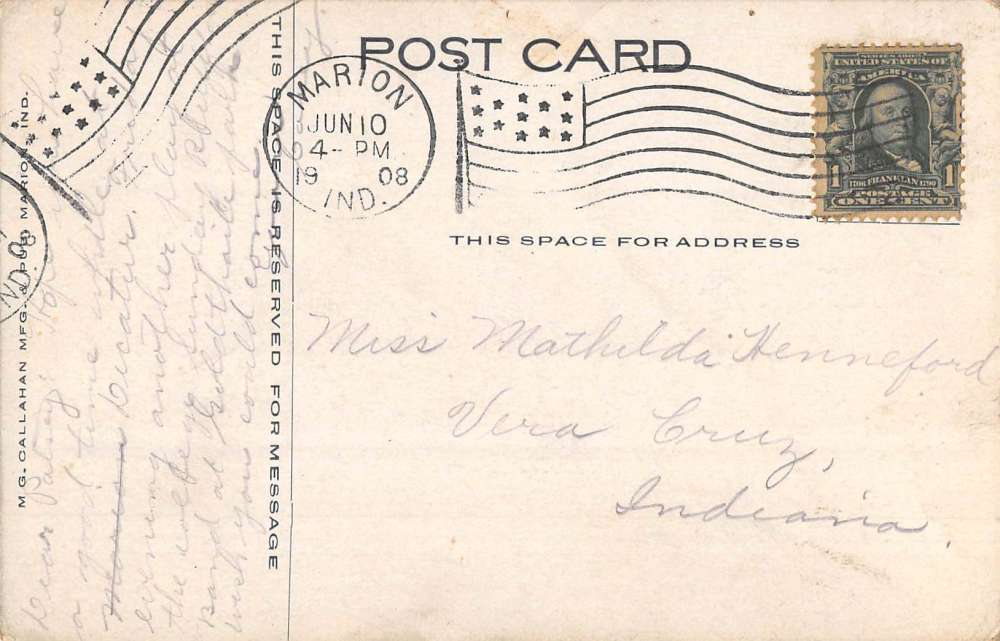 POST CARD
MARION
JUN 10
4- PM
19 08
IND.
UNITED STATES OF
AMERICA
1 1706 FRANKLIN 1790 1
POSTAGE
ONE CENT
THIS SPACE FOR ADDRESS
Miss Mathilda Henneford
Vera Cruz,
Indiana
THIS SPACE IS RESERVED FOR MESSAGE
M.G. CALLAHAN MFG. & PUB. MARION, IND.
Dear Patsy: Hope you have
a good time
Decatur.
evening another
the college
Band at Goldthait park
wish you could come